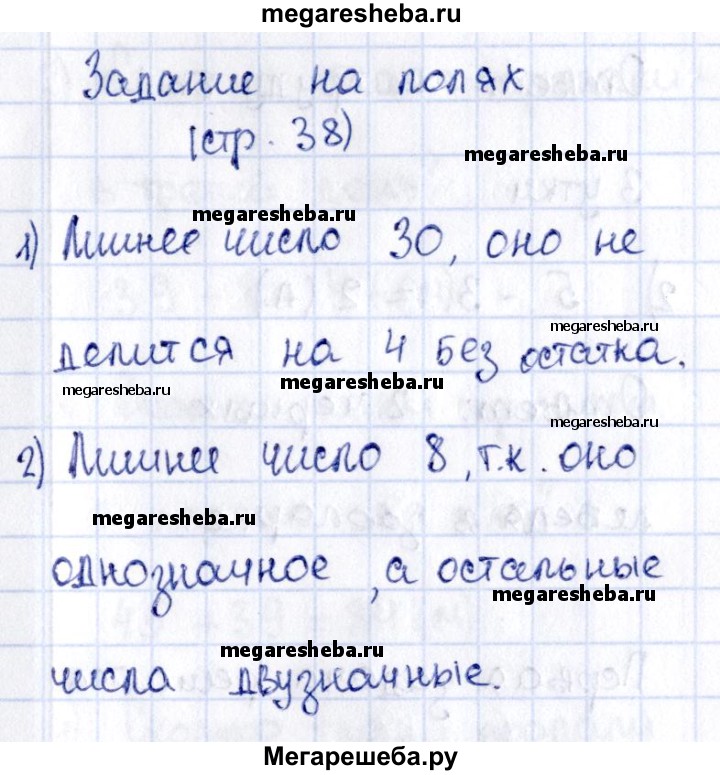 megaresheba.ru
Задание на полях
(стр. 38)
megaresheba.ru
megaresheba.ru
1) Лишнее число 30, оно не
megaresheba.ru
делится на 4 без остатка.
megaresheba.ru
megaresheba.ru
megaresheba.ru
2) Лишнее число 8, т.к. оно
megaresheba.ru
однозначное, а остальные
megaresheba.ru
megaresheba.ru
числа двузначные.
Мегарешеба.ру